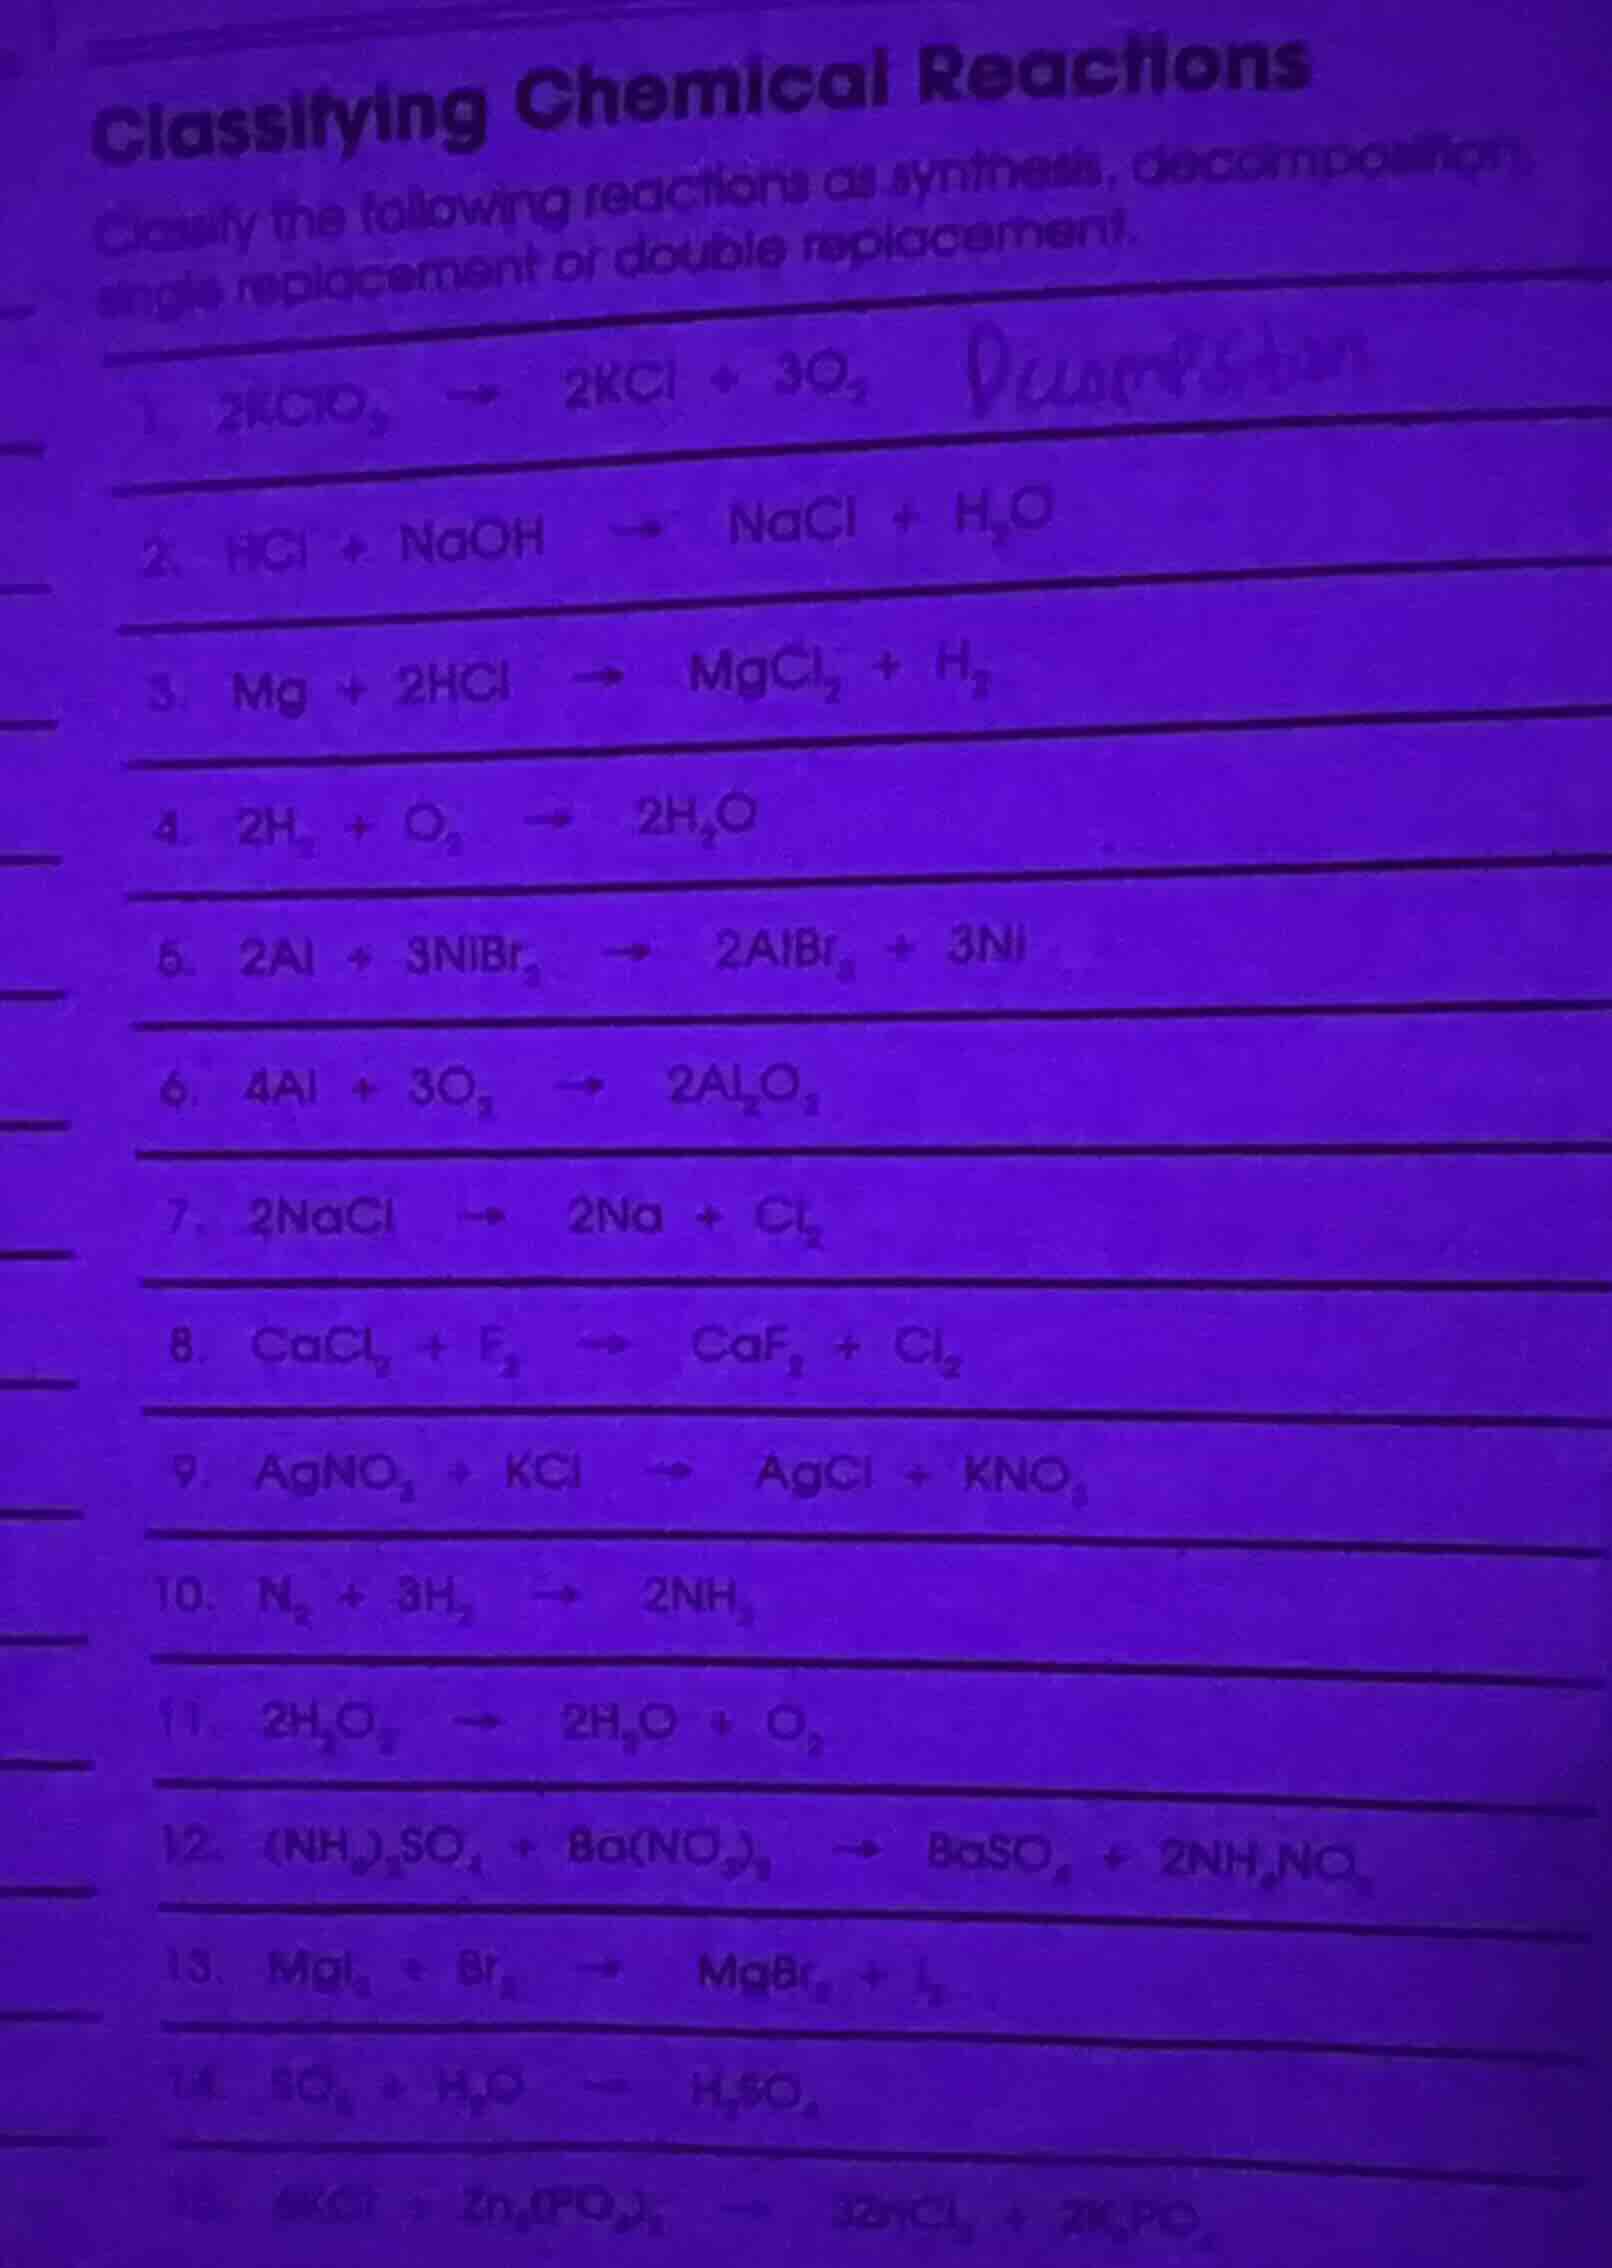 Classifying Chemical Reactions
Classify the following reactions as synthesis, decomposition,
single replacement or double replacement.
1. 2KClO₃ → 2KCl + 3O₂ Decompostion
2. HCl + NaOH → NaCl + H₂O
3. Mg + 2HCl → MgCl₂ + H₂
4. 2H₂ + O₂ → 2H₂O
5. 2Al + 3NiBr₂ → 2AlBr₃ + 3Ni
6. 4Al + 3O₂ → 2Al₂O₃
7. 2NaCl → 2Na + Cl₂
8. CaCl₂ + F₂ → CaF₂ + Cl₂
9. AgNO₃ + KCl → AgCl + KNO₃
10. N₂ + 3H₂ → 2NH₃
11. 2H₂O₂ → 2H₂O + O₂
12. (NH₄)₂SO₄ + Ba(NO₃)₂ → BaSO₄ + 2NH₄NO₃
13. MgI₂ + Br₂ → MgBr₂ + I₂
14. SO₃ + H₂O → H₂SO₄
15. 6KCl + Zn₃(PO₄)₂ → 3ZnCl₂ + 2K₃PO₄